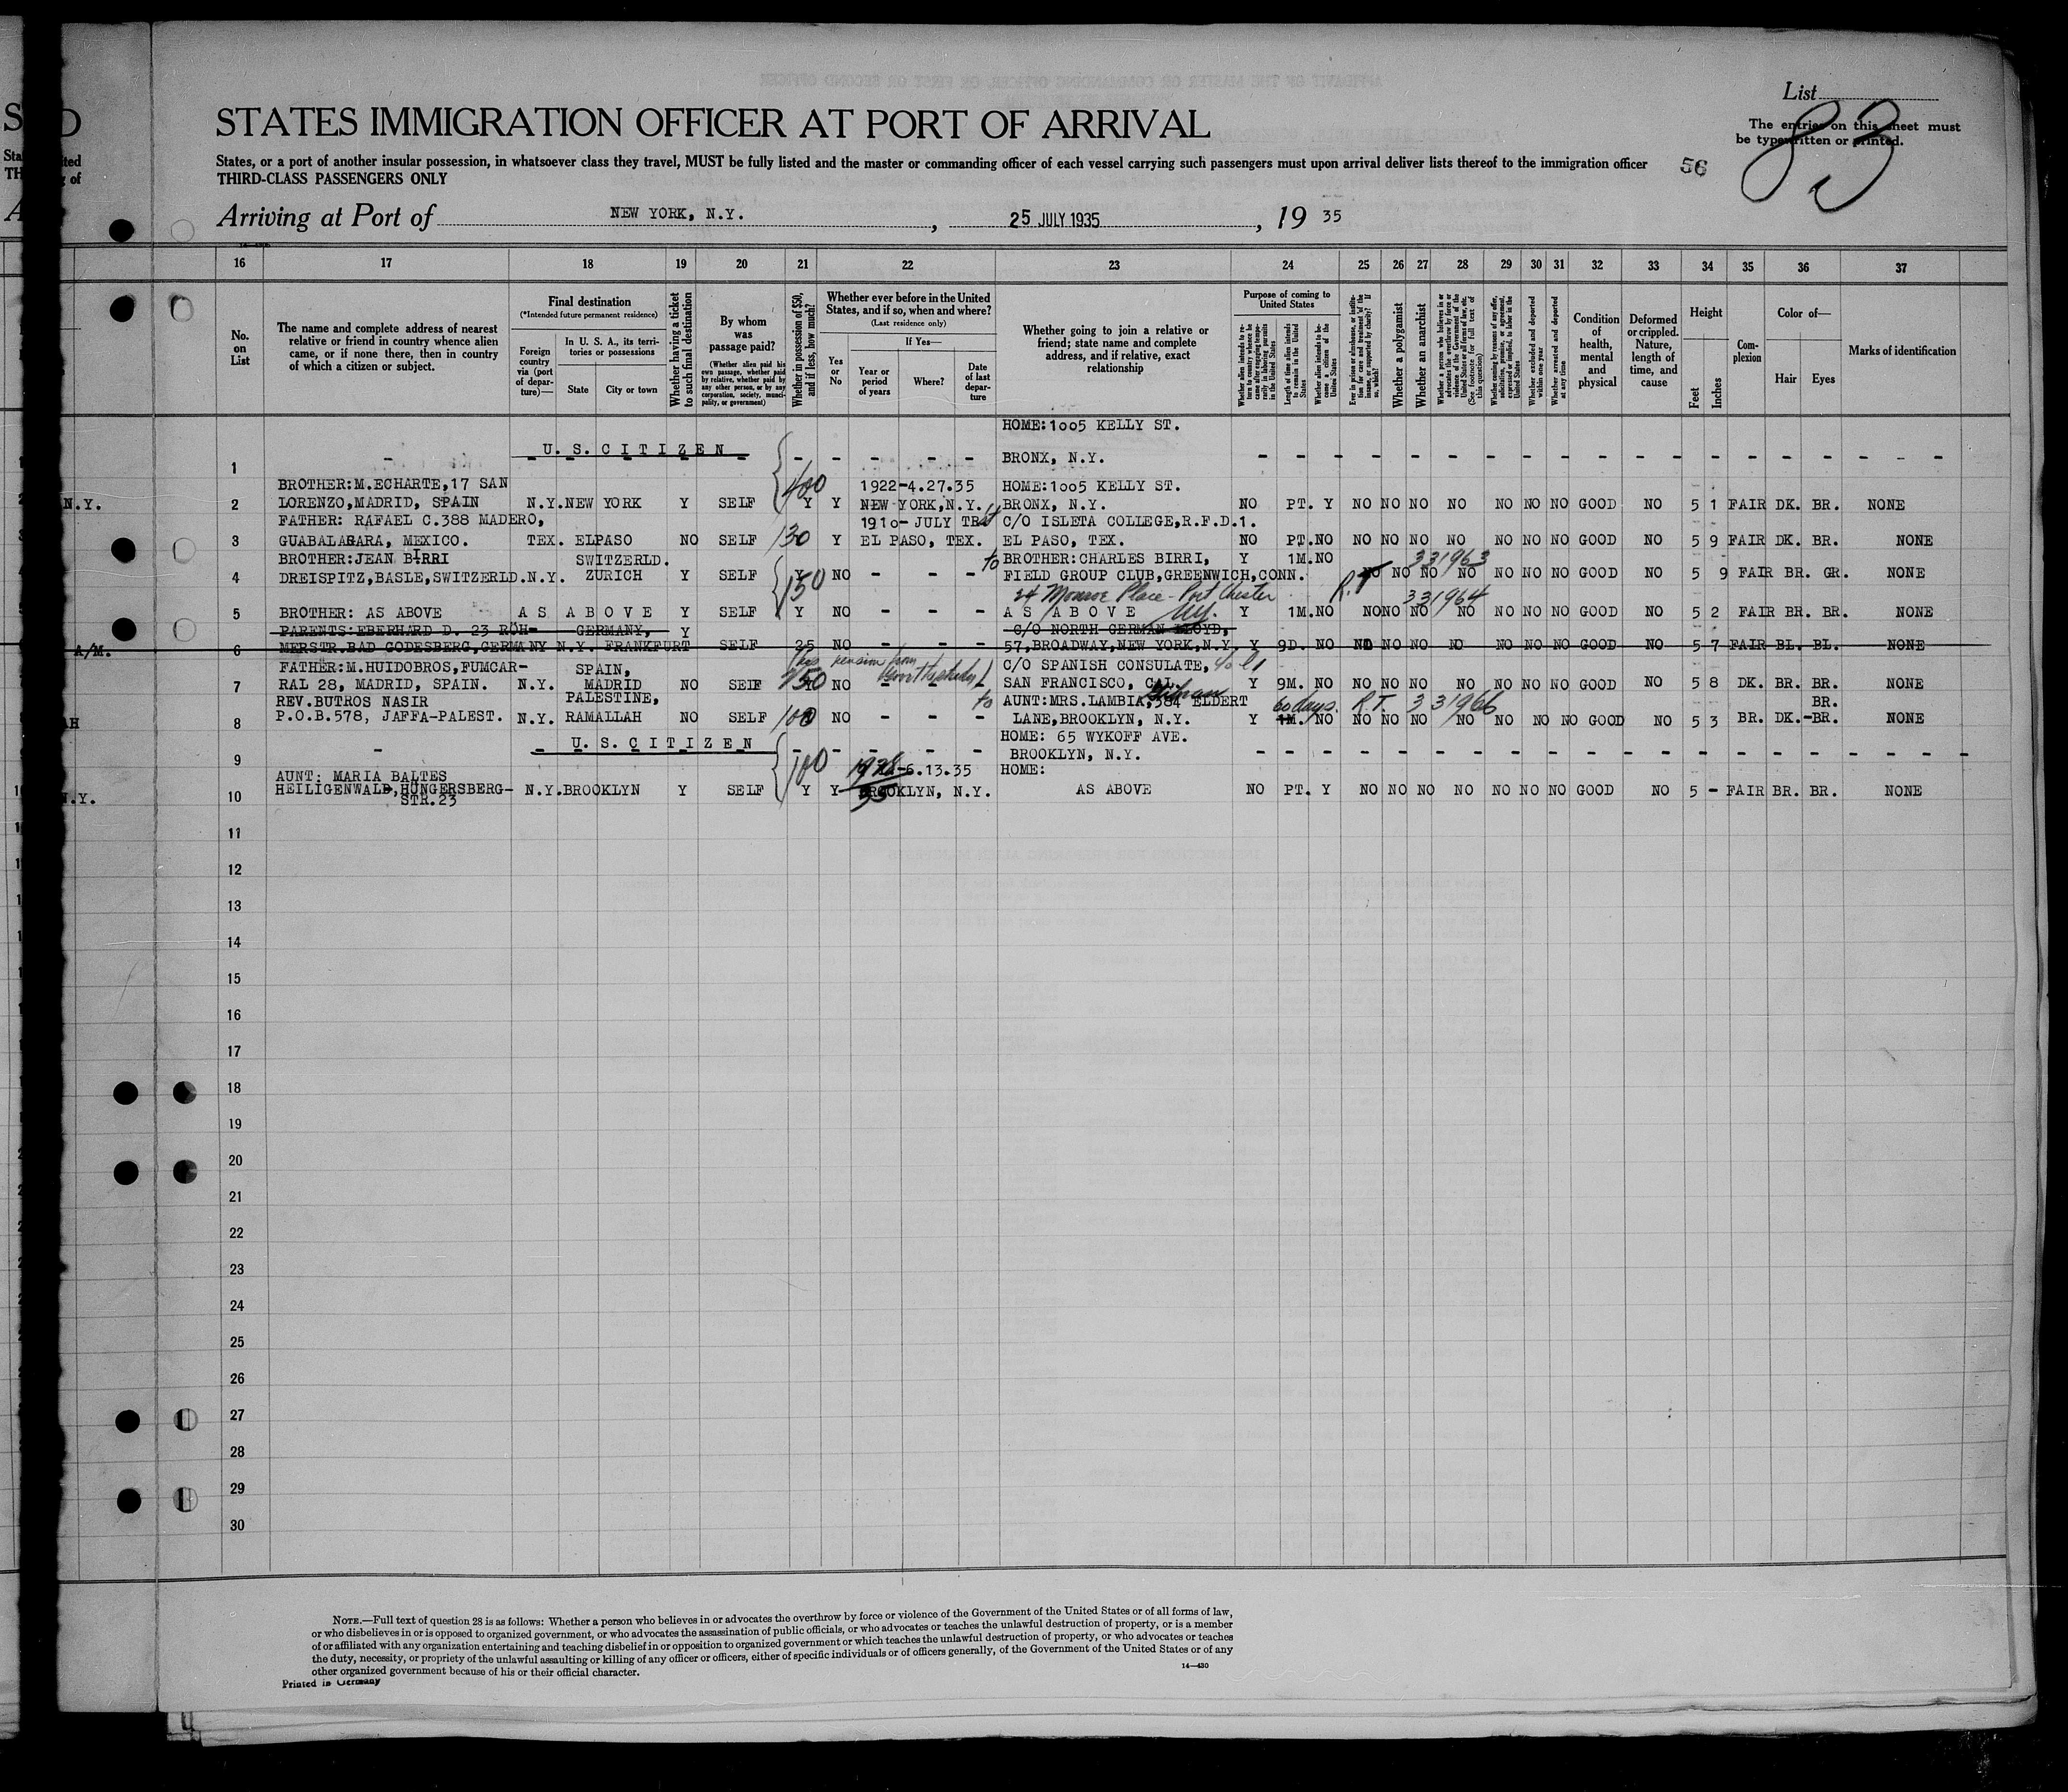 List
83
The entries on this sheet must
be typewritten or printed.
STATES IMMIGRATION OFFICER AT PORT OF ARRIVAL
States, or a port of another insular possession, in whatsoever class they travel, MUST be fully listed and the master or commanding officer of each vessel carrying such passengers must upon arrival deliver lists thereof to the immigration officer
56
THIRD-CLASS PASSENGERS ONLY
Arriving at Port of NEW YORK, N.Y. , 25 JULY 1935 , 19 35
16 17 18 19 20 21 22 23 24 25 26 27 28 29 30 31 32 33 34 35 36 37
No. on List
The name and complete address of nearest
relative or friend in country whence alien
came, or if none there, then in country
of which a citizen or subject.
Final destination
(*Intended future permanent residence)
Foreign country via (port of departure)—
In U. S. A., its territories or possessions
State
City or town
Whether having a ticket to such final destination
By whom was passage paid?
(Whether alien paid his own passage, whether paid by relative, whether paid by any other person, or by any corporation, society, municipality, or government)
Whether in possession of $50, and if less, how much?
Whether ever before in the United
States, and if so, when and where?
(Last residence only)
Yes or No
If Yes—
Year or period of years
Where?
Date of last departure
Whether going to join a relative or
friend; state name and complete
address, and if relative, exact
relationship
Purpose of coming to United States
Whether alien intends to return to country whence he came after engaging temporarily in laboring pursuits in the United States
Length of time alien intends to remain in the United States
Whether alien intends to become a citizen of the United States
Ever in prison or almshouse, or institution for care and treatment of the insane, or supported by charity? If so, which?
Whether a polygamist
Whether an anarchist
Whether a person who believes in or advocates the overthrow by force or violence of the Government of the United States or all forms of law, etc. (See footnote for full text of this question)
Whether coming by reason of any offer, solicitation, promise, or agreement, expressed or implied, to labor in the United States
Whether excluded and deported within one year
Whether arrested and deported at any time
Condition of health, mental and physical
Deformed or crippled. Nature, length of time, and cause
Height
Feet
Inches
Complexion
Color of—
Hair
Eyes
Marks of identification
HOME:1005 KELLY ST.
1 - U. S. C I T I Z E N - - - - - BRONX, N.Y. - - - - - - - - - - - - - - - - -
BROTHER:M.ECHARTE,17 SAN 400 1922-4.27.35 HOME:1005 KELLY ST.
N.Y. 2 LORENZO,MADRID, SPAIN N.Y. NEW YORK Y SELF Y Y NEW YORK,N.Y. BRONX, N.Y. NO PT. Y NO NO NO NO NO NO NO GOOD NO 5 1 FAIR DK. BR. NONE
FATHER: RAFAEL C.388 MADERO, 1910- JULY C/O ISLETA COLLEGE,R.F.D.1.
3 GUABALAGARA, MEXICO. TEX. ELPASO NO SELF 130 Y EL PASO, TEX. EL PASO, TEX. NO PT.NO NO NO NO NO NO NO NO GOOD NO 5 9 FAIR DK. BR. NONE
BROTHER:JEAN BIRRI SWITZERLD. to BROTHER:CHARLES BIRRI, Y 1M.NO 331963
4 DREISPITZ,BASLE,SWITZERLD. N.Y. ZURICH Y SELF Y 150 NO - - - FIELD GROUP CLUB,GREENWICH,CONN. R.T NO NO NO NO NO NO NO GOOD NO 5 9 FAIR BR. GR. NONE
24 Monroe Place - Port Chester 331964
5 BROTHER: AS ABOVE A S A B O V E Y SELF Y NO - - - A S A B O V E N.Y. Y 1M.NO NO NO NO NO NO NO NO GOOD NO 5 2 FAIR BR. BR. NONE
PARENTS:EBERHARD D. 23 RÖH- GERMANY, Y C/O NORTH GERMAN LLOYD,
A/M. 6 MERSTR.BAD GODESBERG,GERMANY N.Y. FRANKFURT SELF 25 NO - - - 57,BROADWAY,NEW YORK,N.Y. Y 9D. NO NO NO NO NO NO NO NO GOOD NO 5 7 FAIR BL. BL. NONE
FATHER:M.HUIDOBROS,FUMCAR- SPAIN, has pension from C/O SPANISH CONSULATE,
7 RAL 28, MADRID, SPAIN. N.Y. MADRID NO SELF Y NO - - - SAN FRANCISCO, CAL. Y 9M. NO NO NO NO NO NO NO NO GOOD NO 5 8 DK. BR. BR. NONE
REV.BUTROS NASIR PALESTINE, to AUNT:MRS.LAMBIA,384 ELDERT 60 days. R.T. 331966 BR.
AH 8 P.O.B.578, JAFFA-PALEST. N.Y. RAMALLAH NO SELF 100 NO - - - LANE,BROOKLYN, N.Y. Y 1M. NO NO NO NO NO NO NO NO GOOD NO 5 3 BR. DK.-BR. NONE
HOME: 65 WYKOFF AVE.
9 - U. S. C I T I Z E N - - - - - BROOKLYN, N.Y. - - - - - - - - - - - - - - - - - -
AUNT: MARIA BALTES 100 -6.13.35 HOME:
N.Y. 10 HEILIGENWALD,HÜNGERSBERG- N.Y. BROOKLYN Y SELF Y Y BROOKLYN, N.Y. AS ABOVE NO PT. Y NO NO NO NO NO NO NO GOOD NO 5 - FAIR BR. BR. NONE
STR.23
11
12
13
14
15
16
17
18
19
20
21
22
23
24
25
26
27
28
29
30
NOTE.—Full text of question 28 is as follows: Whether a person who believes in or advocates the overthrow by force or violence of the Government of the United States or of all forms of law,
or who disbelieves in or is opposed to organized government, or who advocates the assassination of public officials, or who advocates or teaches the unlawful destruction of property, or is a member
of or affiliated with any organization entertaining and teaching disbelief in or opposition to organized government or which teaches the unlawful destruction of property, or who advocates or teaches
the duty, necessity, or propriety of the unlawful assaulting or killing of any officer or officers, either of specific individuals or of officers generally, of the Government of the United States or of any
other organized government because of his or their official character.
14—430
Printed in Germany